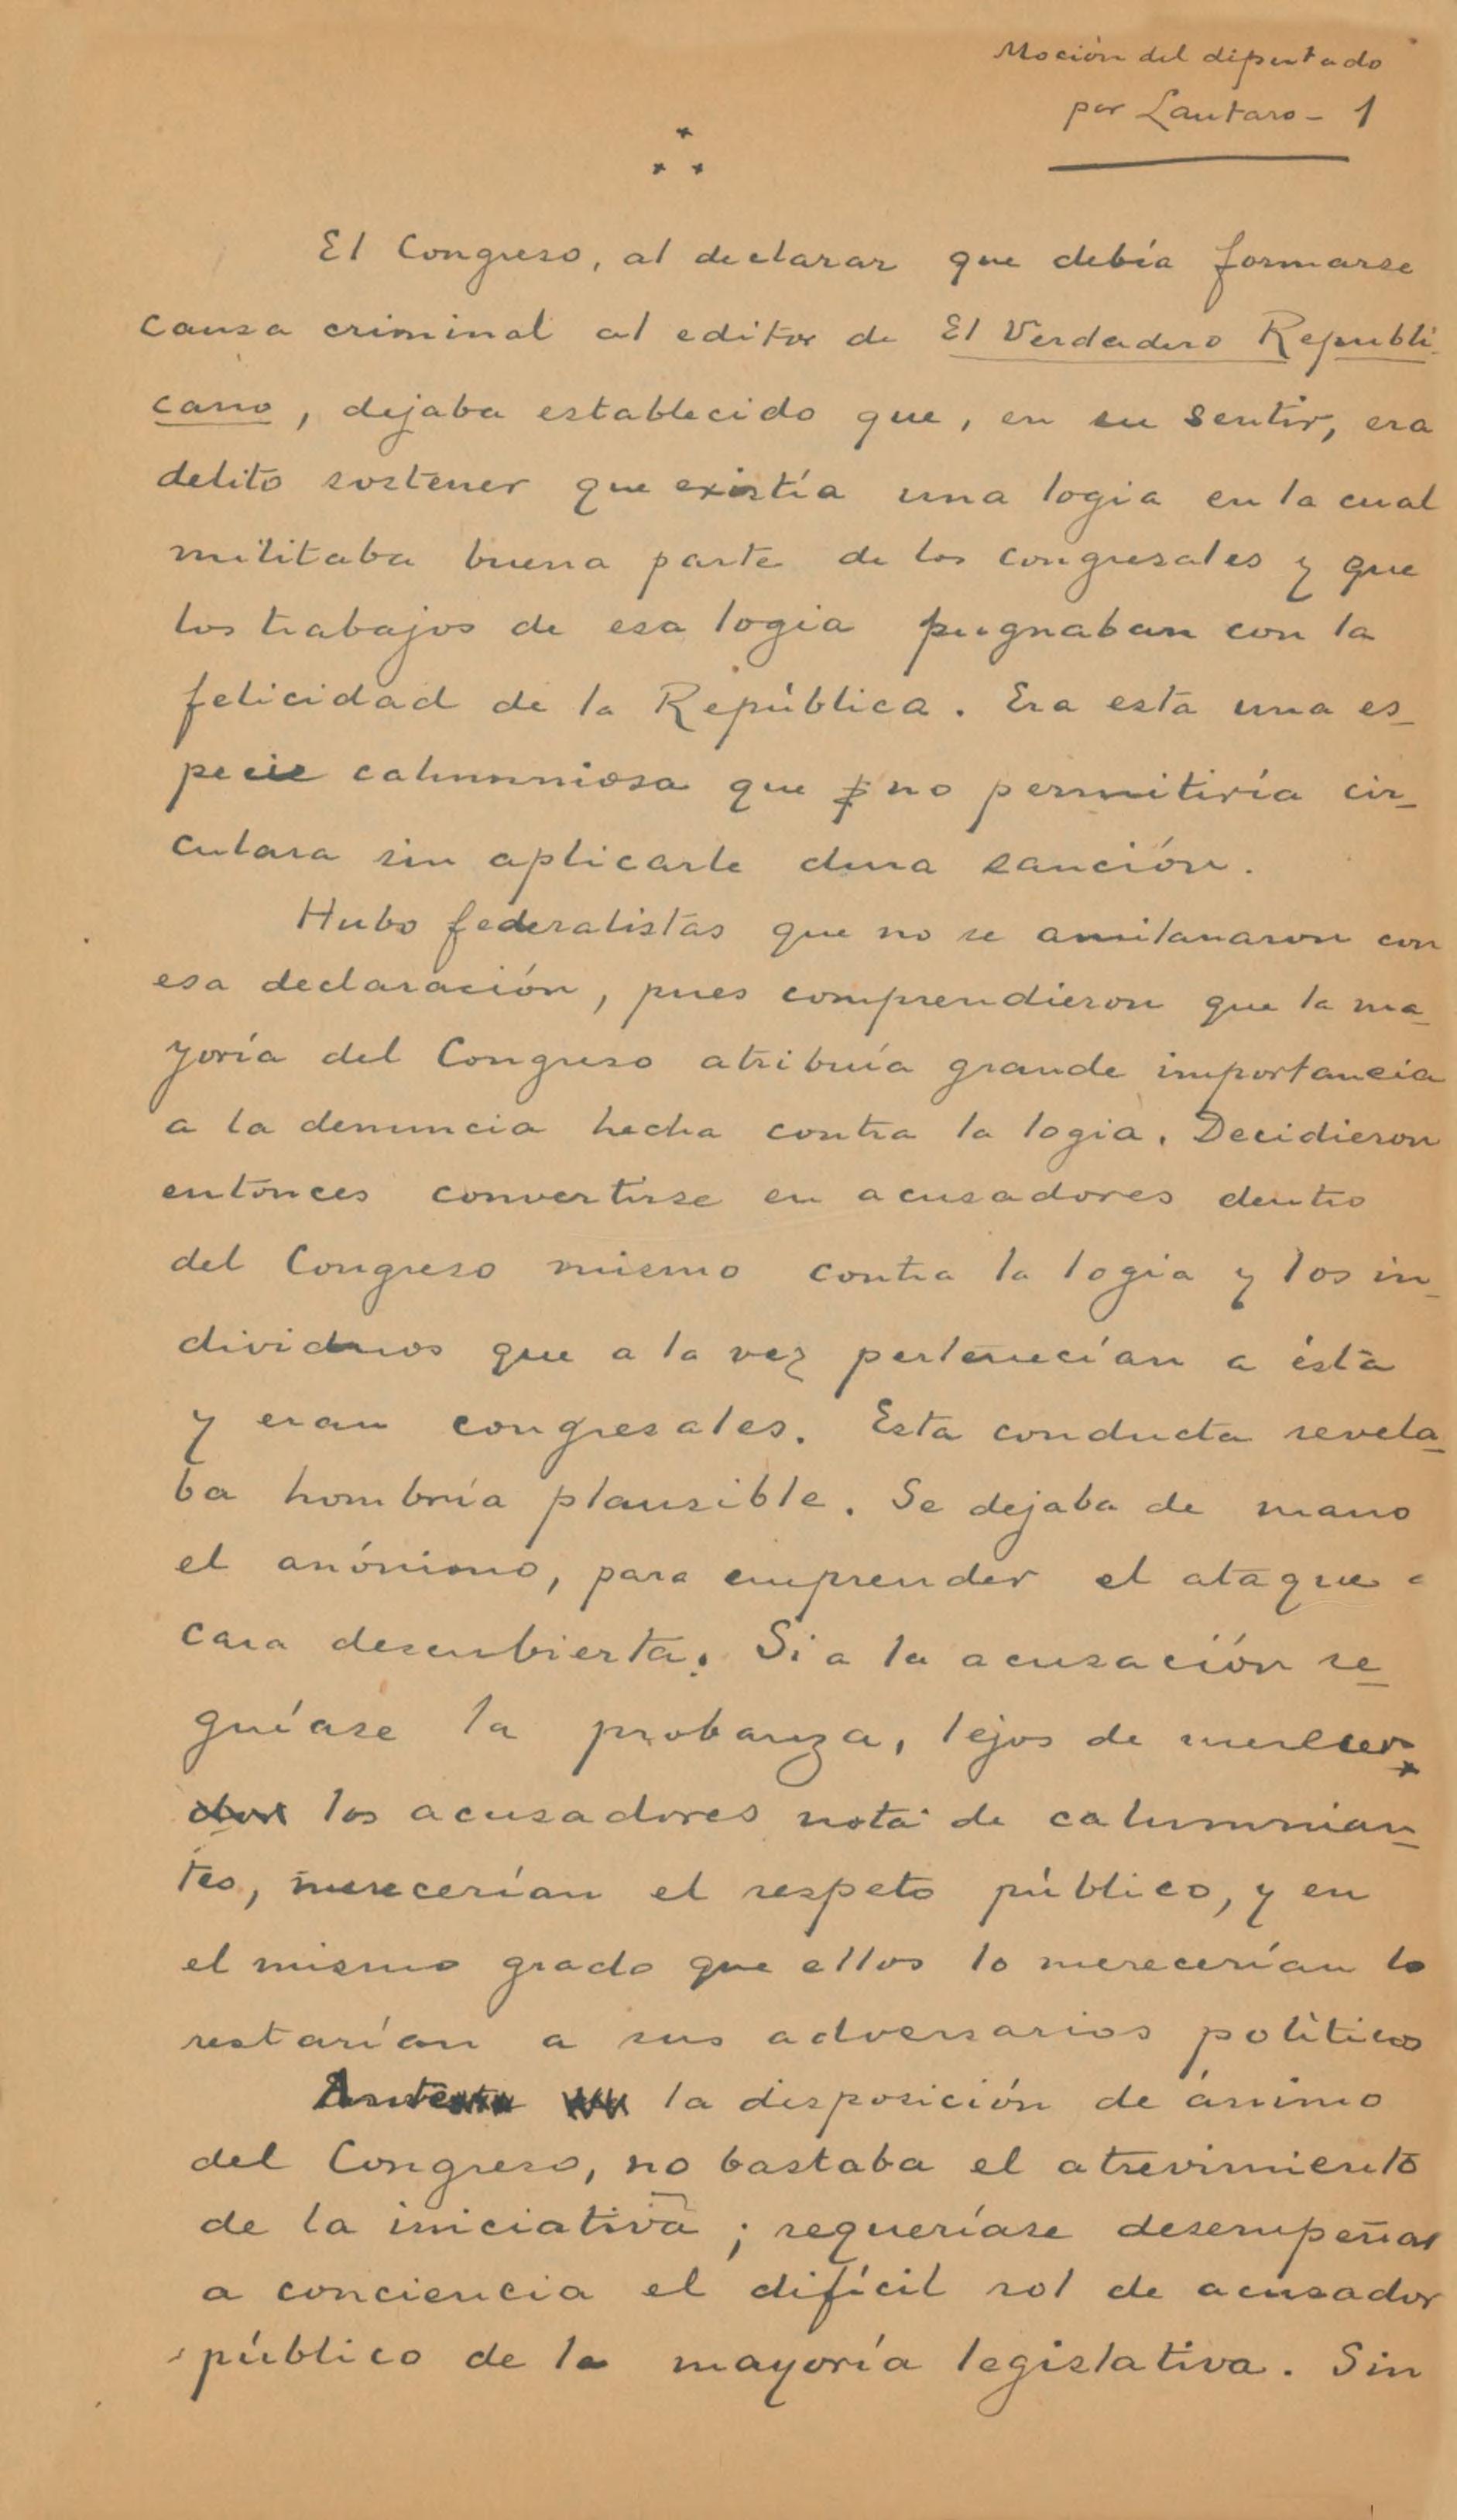 Moción del diputado
por Lautaro - 1
El Congreso, al declarar que debía formarse
causa criminal al editor de El Verdadero Republi-
cano, dejaba establecido que, en su sentir, era
delito sostener que existía una logia en la cual
militaba buena parte de los congresales y que
los trabajos de esa logia pugnaban con la
felicidad de la República. Era esta una es-
pecie calumniosa que no permitiría cir-
culara sin aplicarle dura sanción.
Hubo federalistas que no se amilanaron con
esa declaración, pues comprendieron que la ma-
yoría del Congreso atribuía grande importancia
a la denuncia hecha contra la logia. Decidieron
entonces convertirse en acusadores dentro
del Congreso mismo contra la logia y los in-
dividuos que a la vez pertenecían a ésta
y eran congresales. Esta conducta revela-
ba hombría plausible. Se dejaba de mano
el anónimo, para emprender el ataque a
cara descubierta. Si a la acusación se-
guíase la probanza, lejos de merecer
los acusadores nota de calumnian-
tes, merecerían el respeto público, y en
el mismo grado que ellos lo merecerían lo
restarían a sus adversarios políticos
Ante la disposición de ánimo
del Congreso, no bastaba el atrevimiento
de la iniciativa; requeríase desempeñar
a conciencia el difícil rol de acusador
público de la mayoría legislativa. Sin